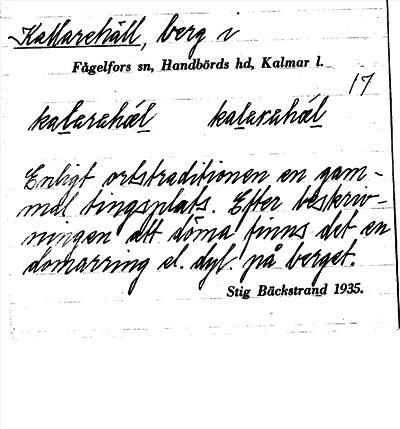 Kallarehäll, berg i
Fågelfors sn, Handbörds hd, Kalmar l.
17
kalarehæl kalarehǽl
Enligt ortstraditionen en gam-
mal tingsplats. Efter beskriv-
ningen att döma finns det en
domarring el. dyl. på berget.
Stig Bäckstrand 1935.